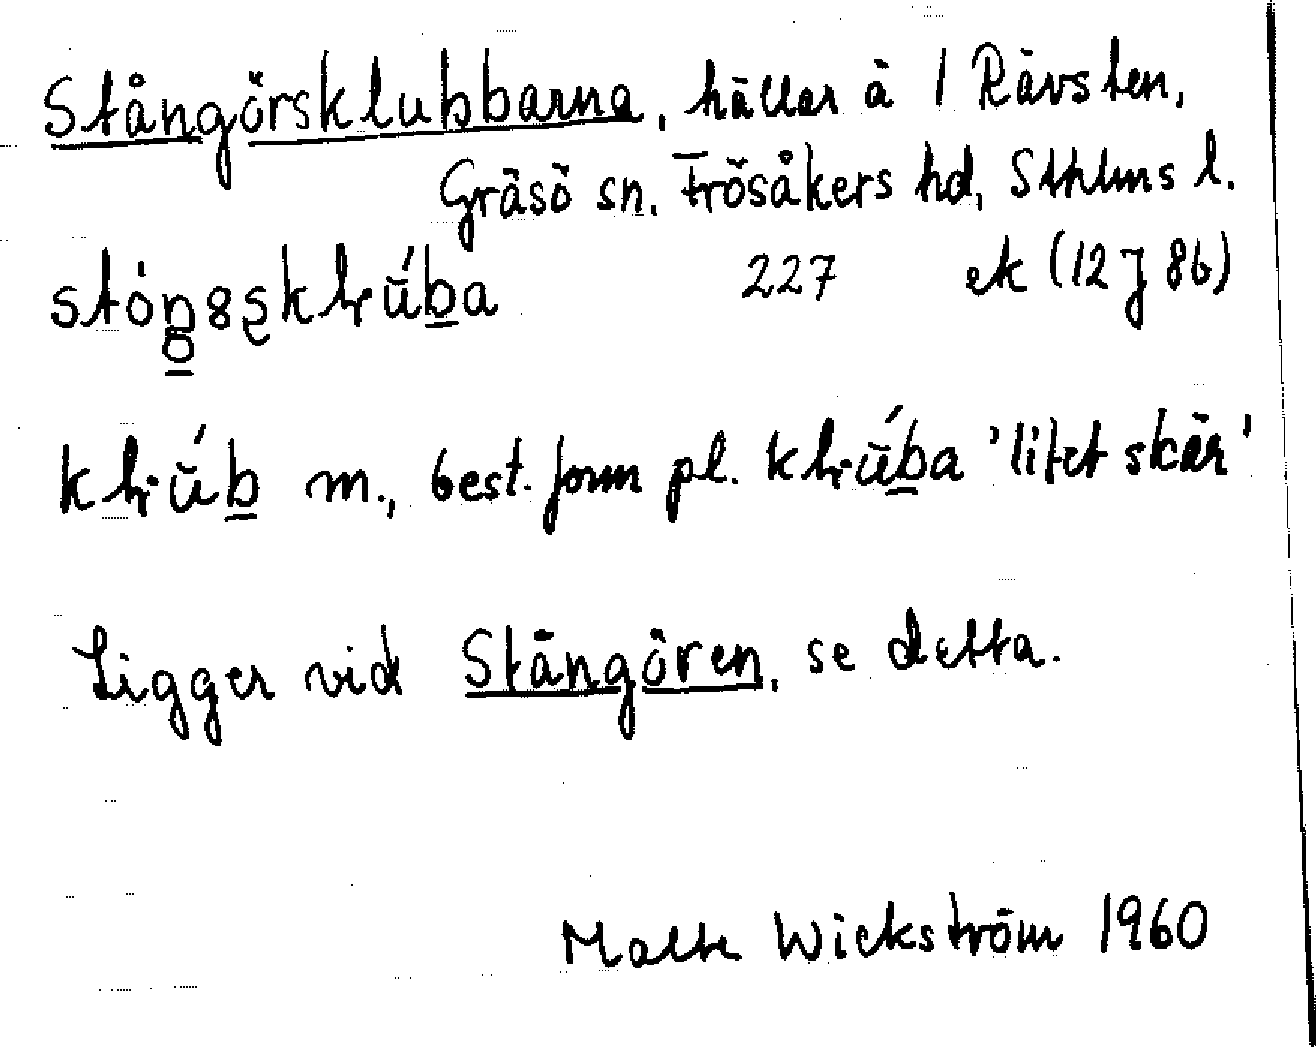 Stångörsklubbarna, hällar å 1 Rävsten,
Gräsö sn. Frösåkers hd, Sthlms l.
227 ek (12 J 8b)
m., best. form pl. 'litet skär'
Ligger vid Stångören, se detta.
Malte Wickström 1960